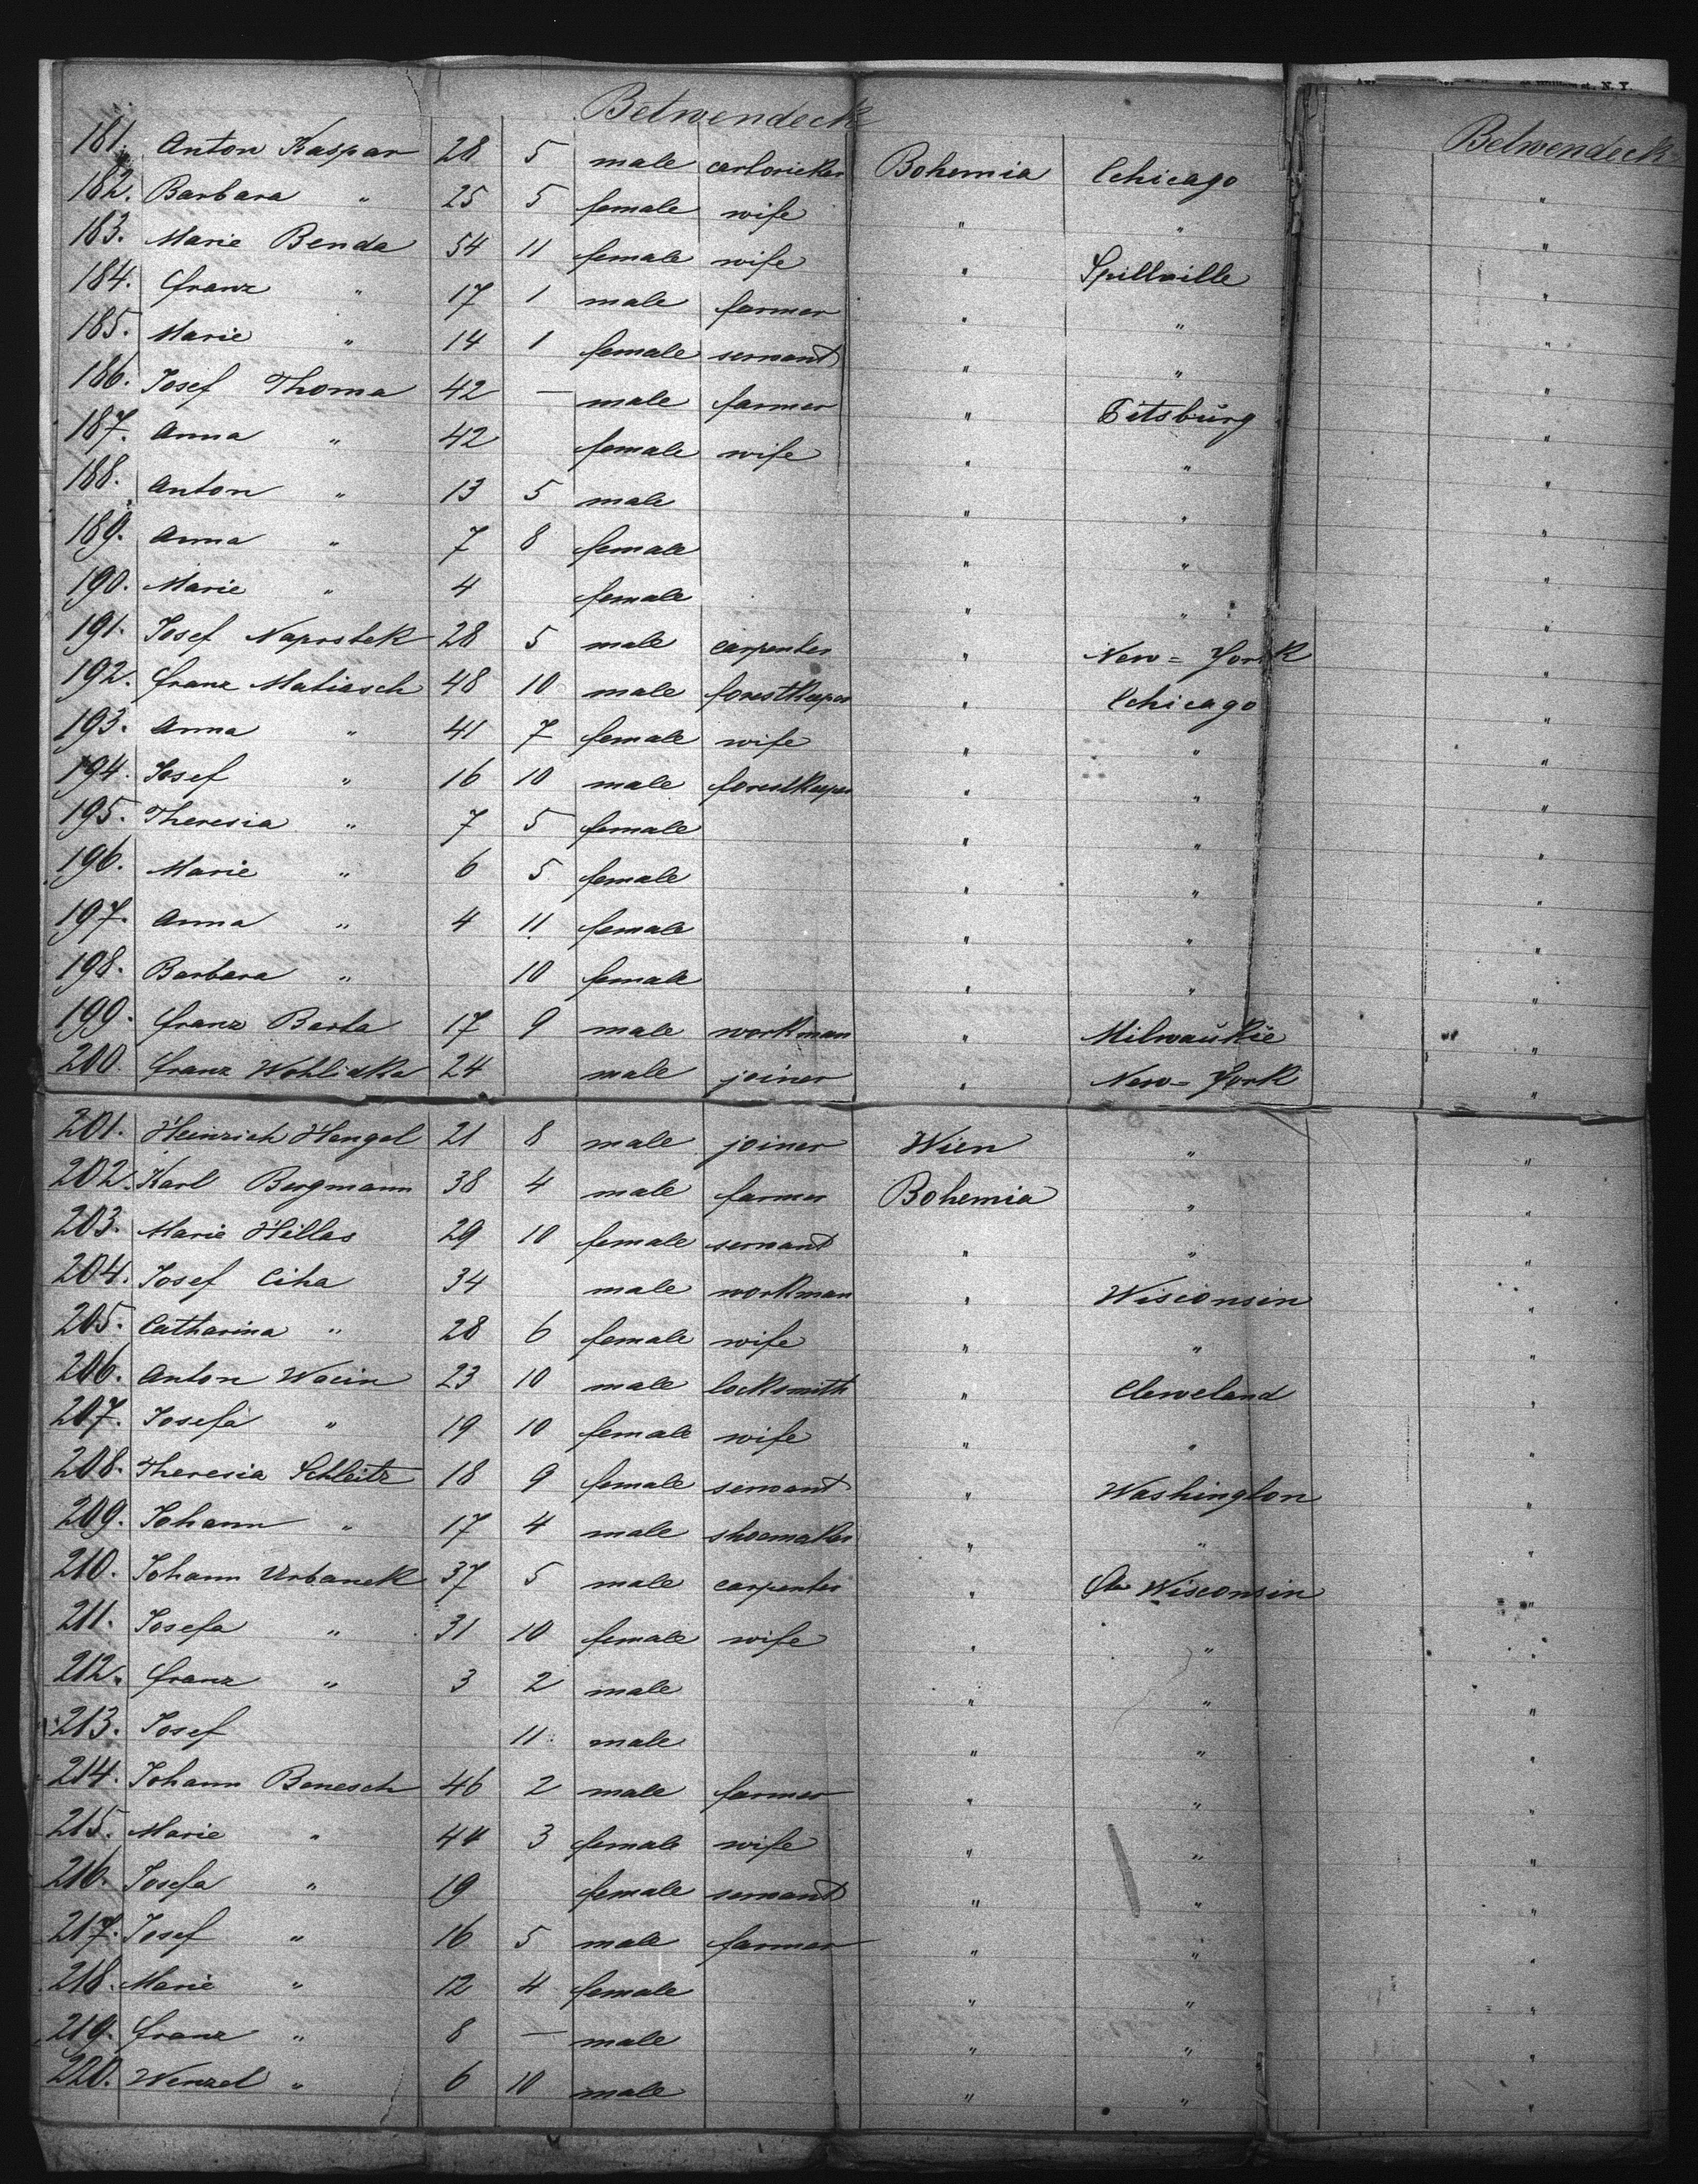 Betwendeck Betwendeck
181. Anton Kaspar 28 5 male Bohemia Chicago
182. Barbara " 25 5 female wife " " "
183. Marie Benda 54 11 female wife " Spillville "
184. Franz " 17 1 male farmer " " "
185. Marie " 14 1 female servant " " "
186. Josef Thoma 42 — male farmer " Pitsburg "
187. Anna " 42 female wife " " "
188. Anton " 13 5 male " " "
189. Anna " 7 8 female " " "
190. Marie " 4 female " " "
191. Josef Naprstek 28 5 male carpenter " New=York "
192. Franz Matiasch 48 10 male forestkeeper " Chicago "
193. Anna " 41 7 female wife " " "
194. Josef " 16 10 male forestkeeper " " "
195. Theresia " 7 5 female " " "
196. Marie " 6 5 female " " "
197. Anna " 4 11 female " " "
198. Barbara " 10 female " " "
199. Franz Barta 17 9 male workman " Milwaukie "
200. Franz Wohlidka 24 male joiner " New=York "
201. Heinrich Hengel 21 8 male joiner Wien " "
202. Karl Bergmann 38 4 male farmer Bohemia " "
203. Marie Hillas 29 10 female servant " " "
204. Josef Ciha 34 male workman " Wisconsin "
205. Catharina " 28 6 female wife " " "
206. Anton Wacin 23 10 male locksmith " Cleweland "
207. Josefa " 19 10 female wife " " "
208. Theresia Schleitz 18 9 female servant " Washington "
209. Johann " 17 4 male shoemaker " " "
210. Johann Urbanek 37 5 male carpenter " Wisconsin "
211. Josefa " 31 10 female wife " " "
212. Franz " 3 2 male " " "
213. Josef 11 male " " "
214. Johann Benesch 46 2 male farmer " " "
215. Marie " 44 3 female wife " " "
216. Josefa " 19 female servant " " "
217. Josef " 16 5 male farmer " " "
218. Marie " 12 4 female " " "
219. Franz " 8 — male " " "
220. Wenzel " 6 10 male " " "